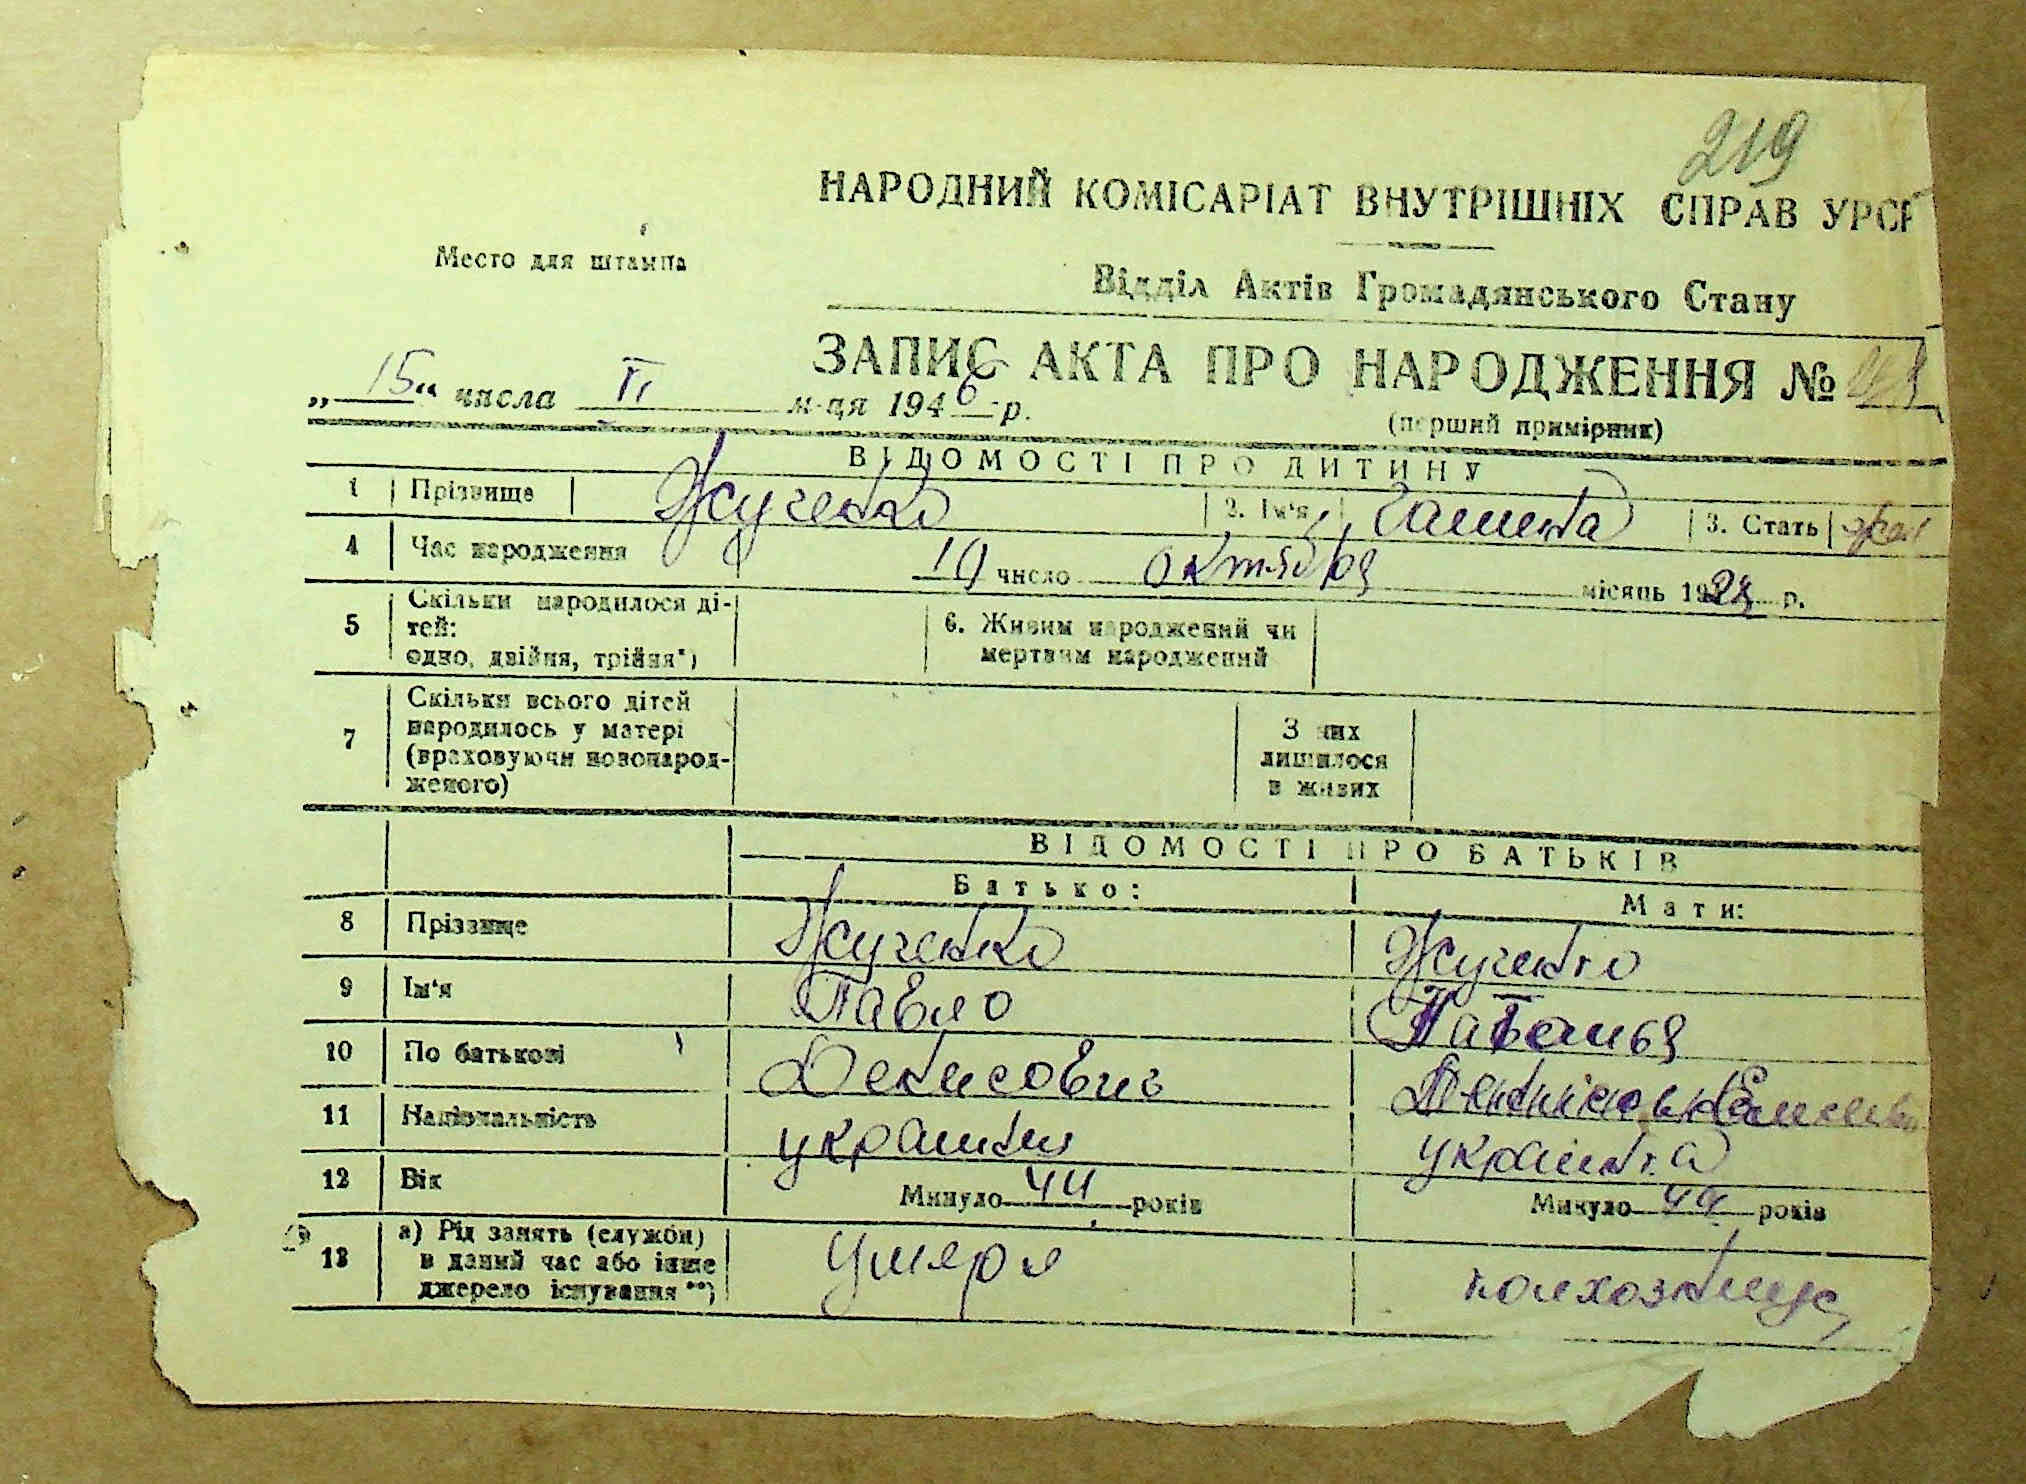 219
НАРОДНИЙ КОМІСАРІАТ ВНУТРІШНІХ СПРАВ УРСР
Место для штампа
Відділ Актів Громадянського Стану
ЗАПИС АКТА ПРО НАРОДЖЕННЯ №
„15“ числа II м-ця 1946 р.
(перший примірник)
ВІДОМОСТІ ПРО ДИТИНУ
1 Прізвище Жученко 2. Ім‘я Галина 3. Стать жен
4 Час народження 19 число октября місяць 192 р.
5 Скільки народилося ді-
тей:
одно, двійня, трійня*)
6. Живим народжений чи
мертвим народжений
7 Скільки всього дітей
народилось у матері
(враховуючи новонарод-
женого)
З них
лишилося
в живих
ВІДОМОСТІ ПРО БАТЬКІВ
Батько: Мати:
8 Прізвище Жученко Жученко
9 Ім‘я Павло Наталья
10 По батькові Денисович
11 Національність украинец украінка
12 Вік Минуло 44 років Минуло 44 років
13 а) Рід занять (служби)
в даний час або інше
джерело існування **)
умер колхозниця